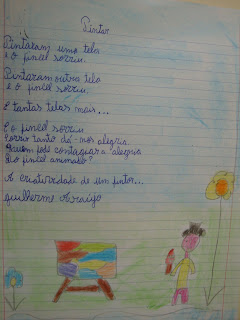 Pintar
Pintaram uma tela
e o pincel sorriu.
Pintaram outra tela
e o pincel sorriu.
E tantas telas mais...
E o pincel sorriu
sorriu tanto dá-nos alegria.
Quem pode contagiar a alegria
do pincel animado?
A criatividade de um pintor...
guilherme Araújo